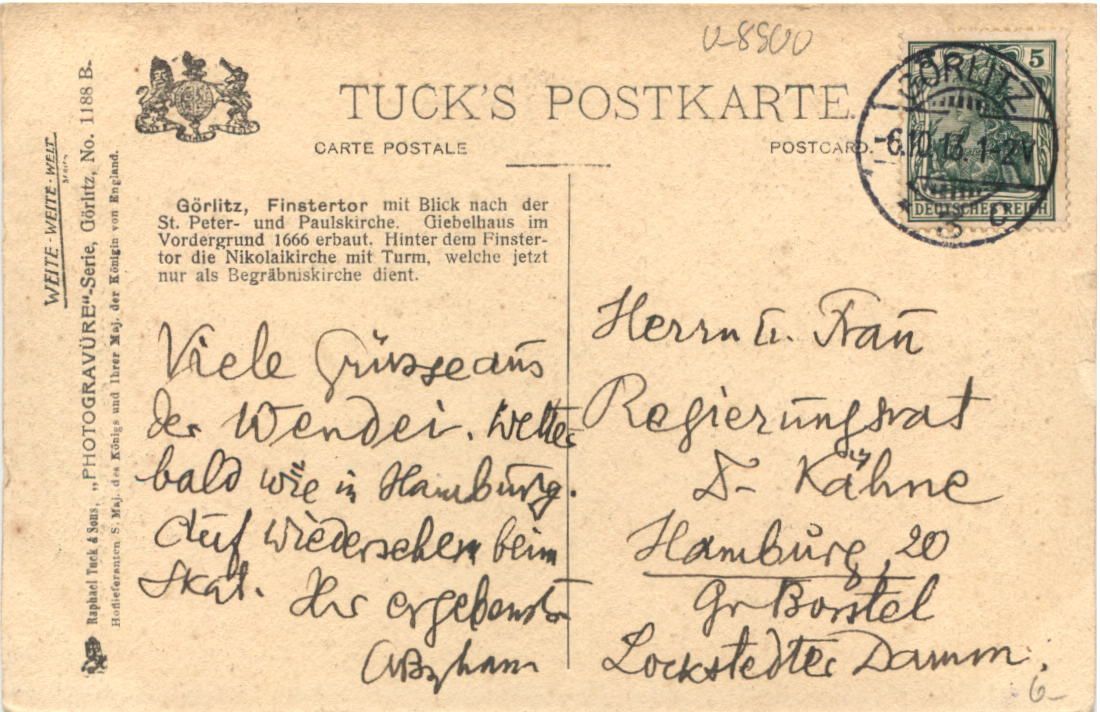 U-8900
TUCK'S POSTKARTE.
CARTE POSTALE
POSTCARD.
5
DEUTSCHES REICH
GÖRLITZ
-6.10.13. 1-2V
* 3 c
Görlitz, Finstertor mit Blick nach der
St. Peter- und Paulskirche. Giebelhaus im
Vordergrund 1666 erbaut. Hinter dem Finster-
tor die Nikolaikirche mit Turm, welche jetzt
nur als Begräbniskirche dient.
WEITE-WEITE-WELT
SERIEN
Raphael Tuck & Sons, „PHOTOGRAVÜRE"-Serie, Görlitz, No. 1188 B.
Hoflieferanten S. Maj. des Königs und Ihrer Maj. der Königin von England.
Viele Grüsse aus
der Wendei. Wetter
bald wie in Hamburg.
Auf Wiedersehen beim
Skat. Ihr ergebenster
Herrn u. Frau
Regierungsrat
Dr Kähne
Hamburg, 20
Gr Borstel
Lockstedter Damm.
6-